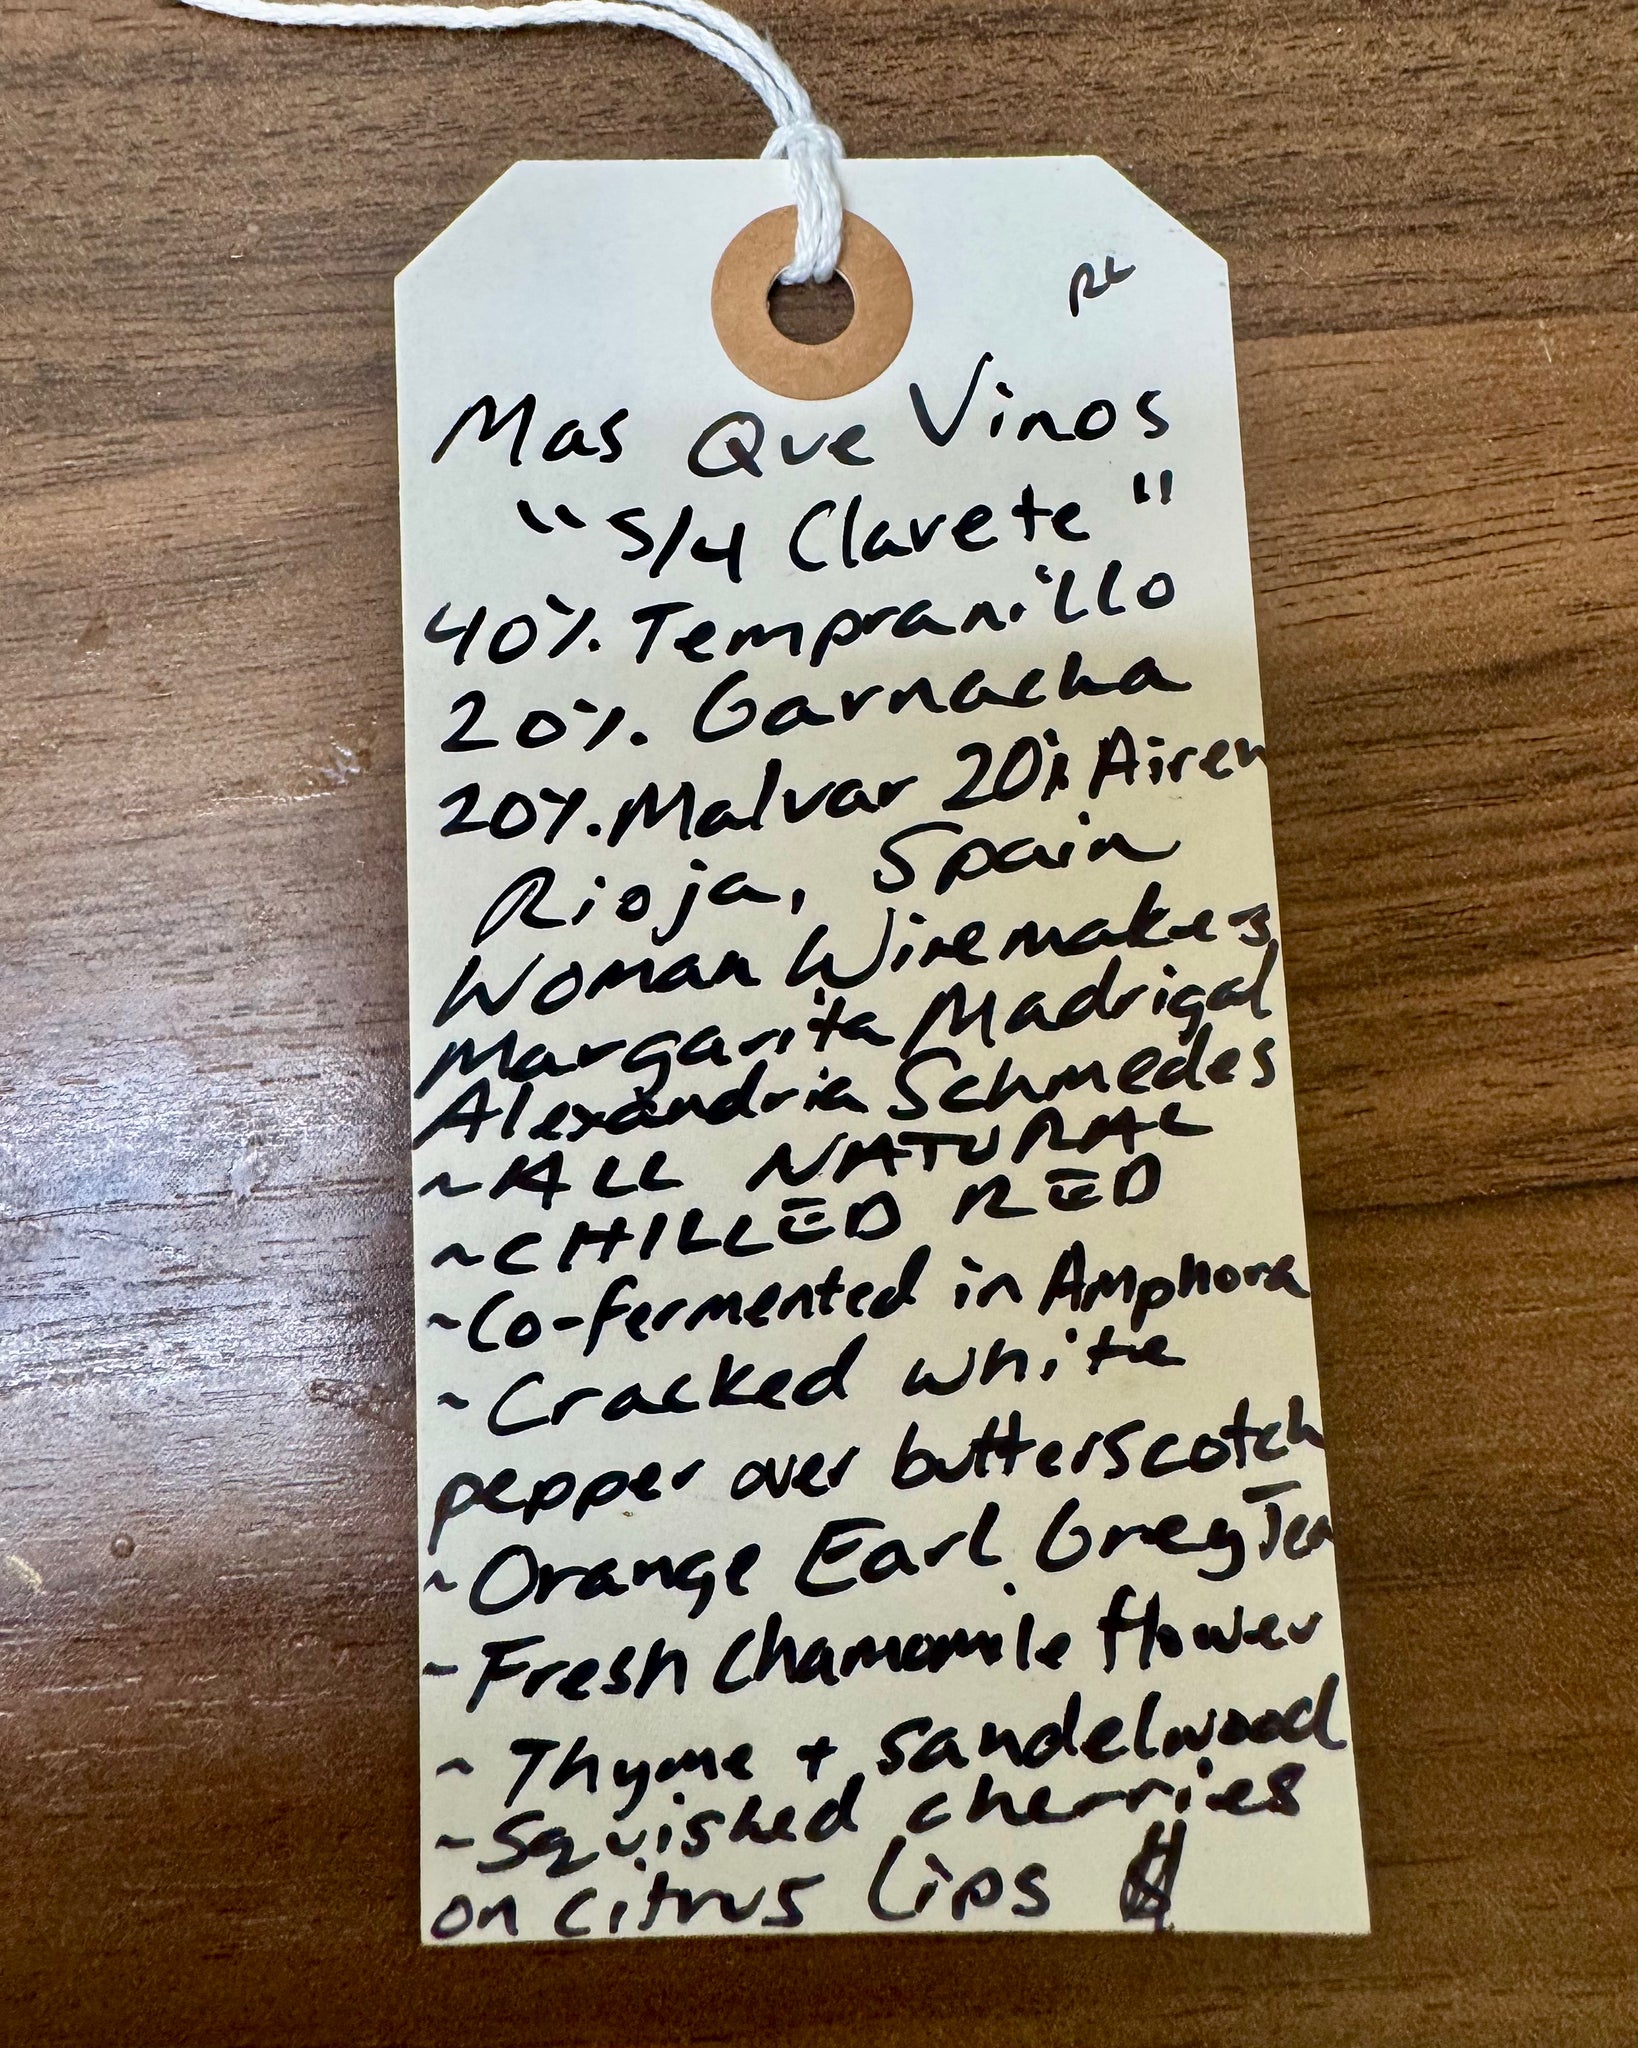 RL
Mas Que Vinos
"5/4 Clarete"
40% Tempranillo
20% Garnacha
20% Malvar 20% Airen
Rioja, Spain
Woman Winemakers
Margarita Madrigal
Alexandria Schmedes
~ALL NATURAL
~CHILLED RED
~Co-fermented in Amphora
~Cracked white
pepper over butterscotch
~Orange Earl Grey Tea
~Fresh Chamomile flower
~Thyme + Sandelwood
~Squished cherries
on citrus lips $